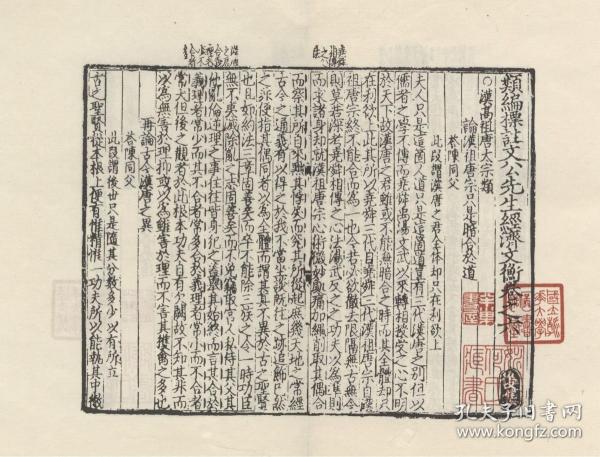 類編標註文公先生經濟文衡卷之六
〇漢高祖唐太宗類
論漢祖唐宗只是暗合於道
答陳同父
此段謂漢唐之君全体却只在利欲上
夫人只是這箇人道只是這箇道豈有三代漢唐之別但以
儒者之學不傳而堯舜禹湯文武以來轉相授受之心不明
於天下故漢唐之君雖或不能無暗合之時而其全體却只
在利欲上此其所以堯舜三代自堯舜三代漢祖唐宗自漢祖
唐宗終不能合而為一也今若必欲徹去限隔無古無今
則莫若深考堯舜相傳之心法湯武反之之功夫以為準則
而求諸身却就漢祖唐宗心術微處痛加繩削取其偶合
而察其所自來黜其悖戾而究其所從起庶幾天地之常經
古今之通義有以得之於我不當坐談既往之迹追飾已然
之非便指其偶同者以為全體而謂其真不異於古之聖賢
也且如約法三章固善矣而卒不能除三族之令一時功臣
無不夷滅除亂之志固善矣而不免竊取宮人私侍其父其
他亂倫逆理之事往往皆身犯之蓋舉其始終而言其合於
義理者常少而其不合者常多合於義理者常小而其不合者
常大但後之觀者於此根本功夫自有欠闕故不知其非而
以為無害於理抑或以為雖害於理而不害其獲禽之多也
再論古今漢唐之異
答陳同父
此段謂後世只是隨其分數多少以有所立
古之聖賢從本根上便有惟精惟一功夫所以能執其中徹
孔夫子旧书网